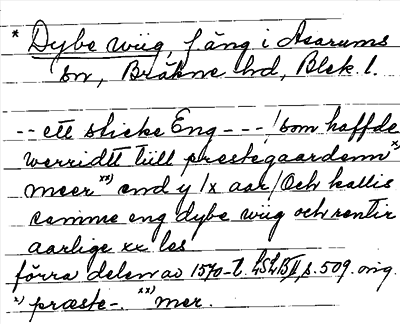 * Dybe wiig, f. äng i Asarums
sn, Bräkne hd, Blek. l.
-- ett sticke Eng --- / som haffde
werridtt tiill prestegaardenn x)
meer xx) end y /x aar / Och kallis
samme eng dybe wiig och rentir
aarlige xx les
förra delen av 1570-t. LSLB II, s. 509. orig.
x) præste-. xx) mer.